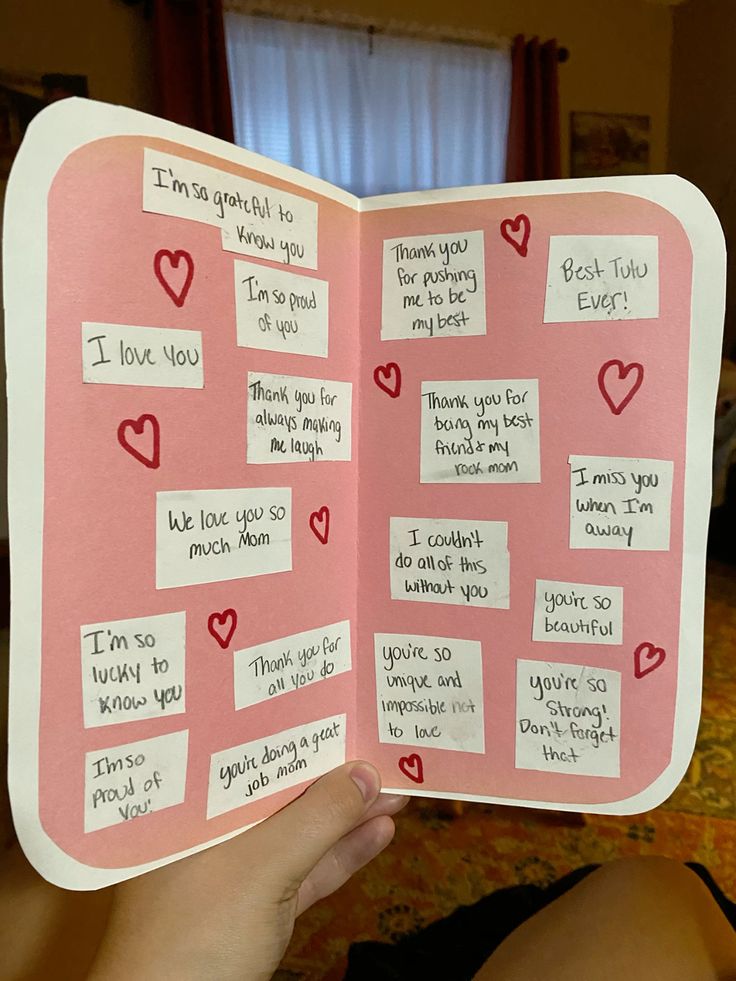 I'm so grateful to
know you
I'm so proud
of you
I love you
Thank you for
always making
me laugh
We love you so
much Mom
I'm so
lucky to
know you
Thank you for
all you do
Imso
proud of
you!
you're doing a great
job mom
Thank you
for pushing
me to be
my best
Best Tutu
Ever!
Thank you for
being my best
friend & my
rock mom
I miss you
when I'm
away
I couldn't
do all of this
without you
you're so
beautiful
you're so
unique and
impossible not
to love
you're so
Strong!
Don't forget
that